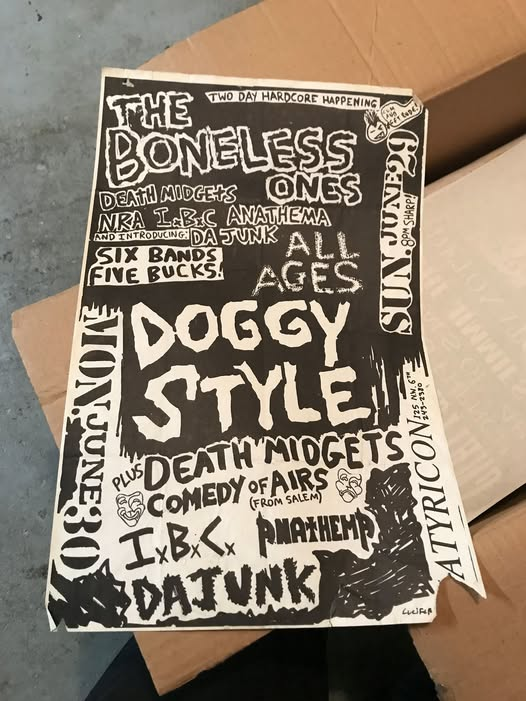 TWO DAY HARDCORE HAPPENING
THE
BONELESS
ONES
DEATH MIDGETS
NRA I.B.C ANATHEMA
AND INTRODUCING: DA JUNK
SIX BANDS
FIVE BUCKS!
ALL
AGES
SUN. JUNE 29
8PM SHARP!
DOGGY
STYLE
MON. JUNE 30
PLUS DEATH MIDGETS
COMEDY OF AIRS
(FROM SALEM)
I.B.C. ANATHEMA
DA JUNK
ATYRICON
125 N.W. 6TH
243-2380
LUCIFER